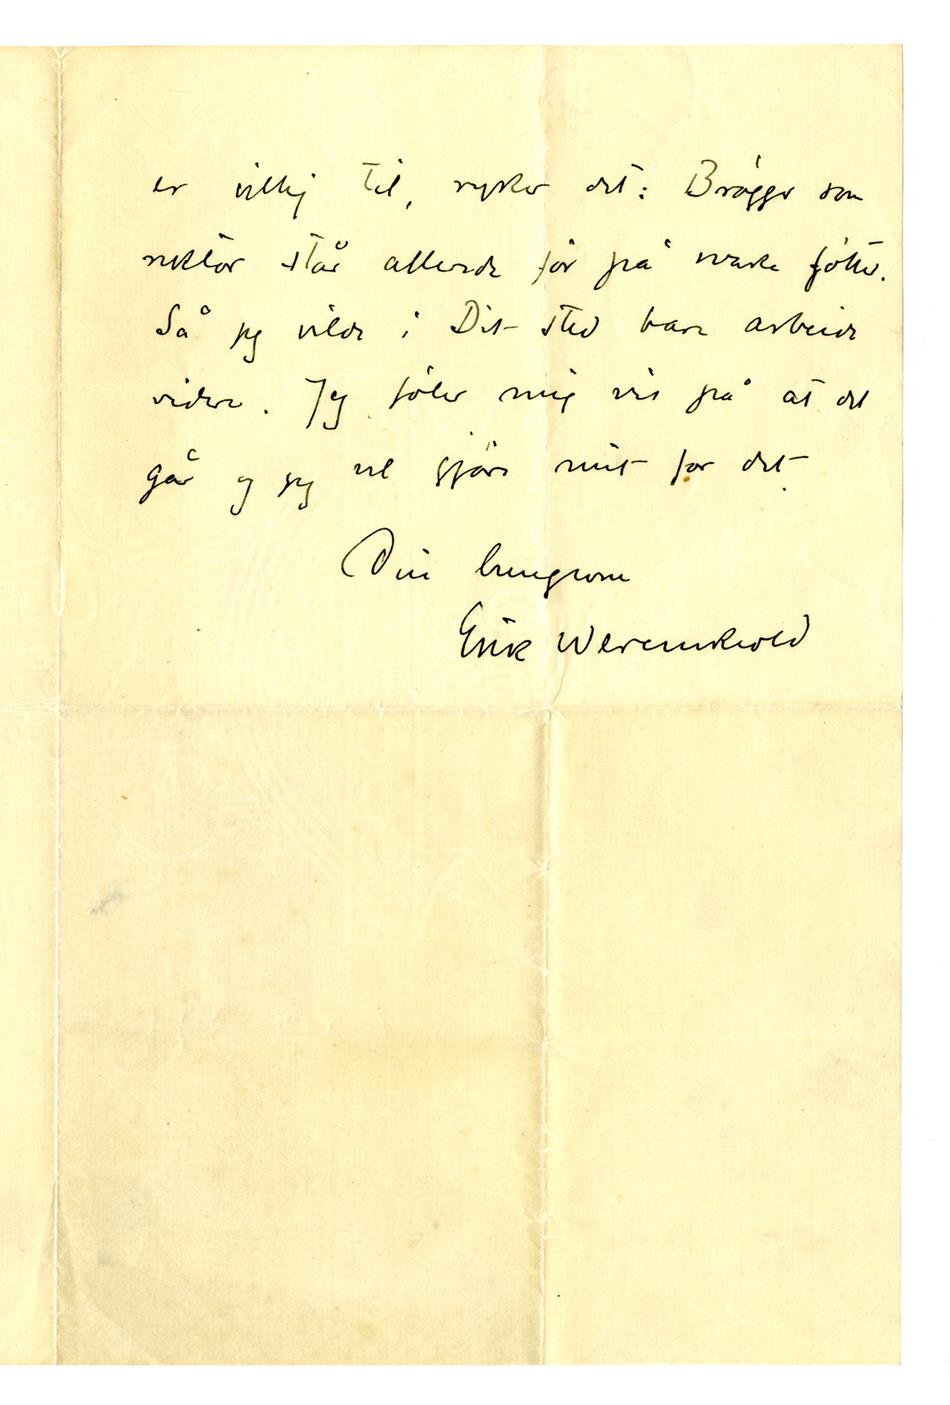 er villig til, ryker det: Brøgger som
rektor står allerede før på svake føtter.
Så jeg vilde i Dit sted bare arbeide
videre. Jeg føler mig vis på at det
går og jeg vil gjøre mit for det.
Din hengivne
Erik Werenskiold